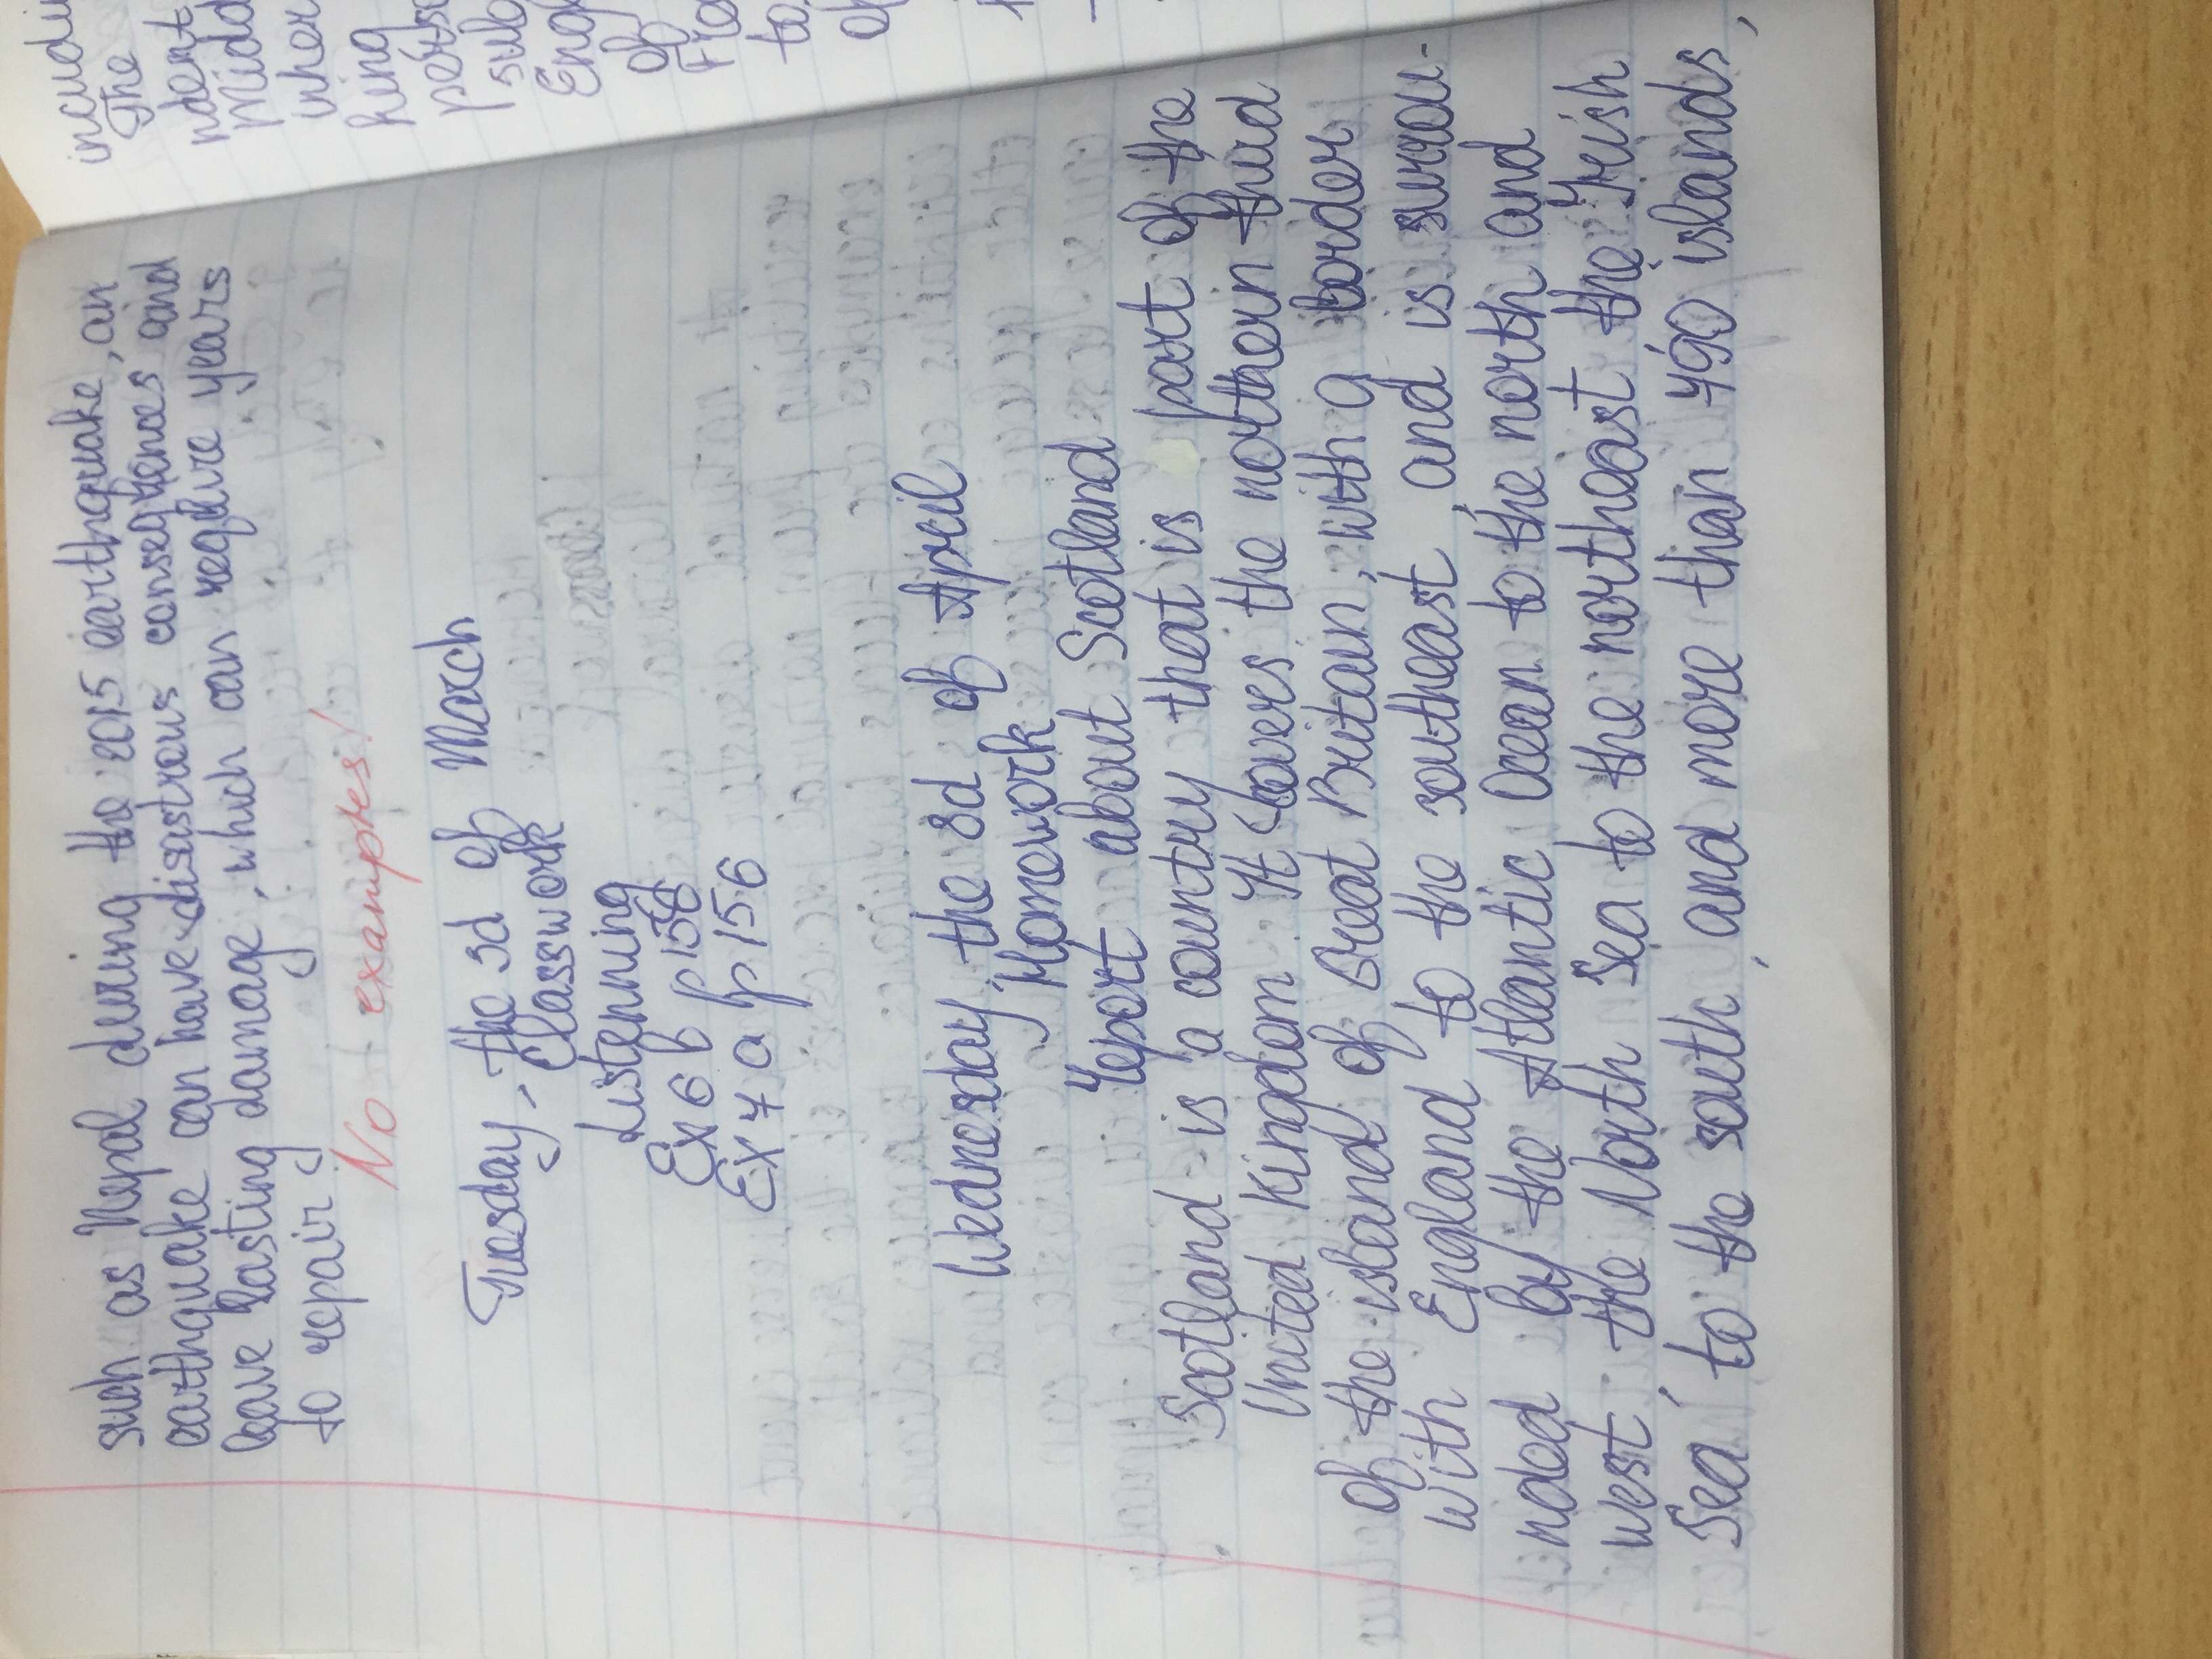 such as Nepal during the 2015 earthquake, an
earthquake can have disastrous consequences and
leave lasting damage, which can require years
to repair
No examples!
Tuesday, the 3d of March
Classwork
Listenning
Ex 6 b p 158
Ex 7 a p 156
Wednesday, the 3d of April
Homework
Report about Scotland
Scotland is a country that is part of the
United Kingdom. It covers the northern third
of the island of Great Britain, with a border
with England to the southeast, and is surrou-
nded by the Atlantic Ocean to the north and
west the North Sea to the northeast the Irish
Sea to the south, and more than 490 islands,
incudi
The
ndent
Midd
inher
king
perso
sub
Eng
of
Fra
to
of